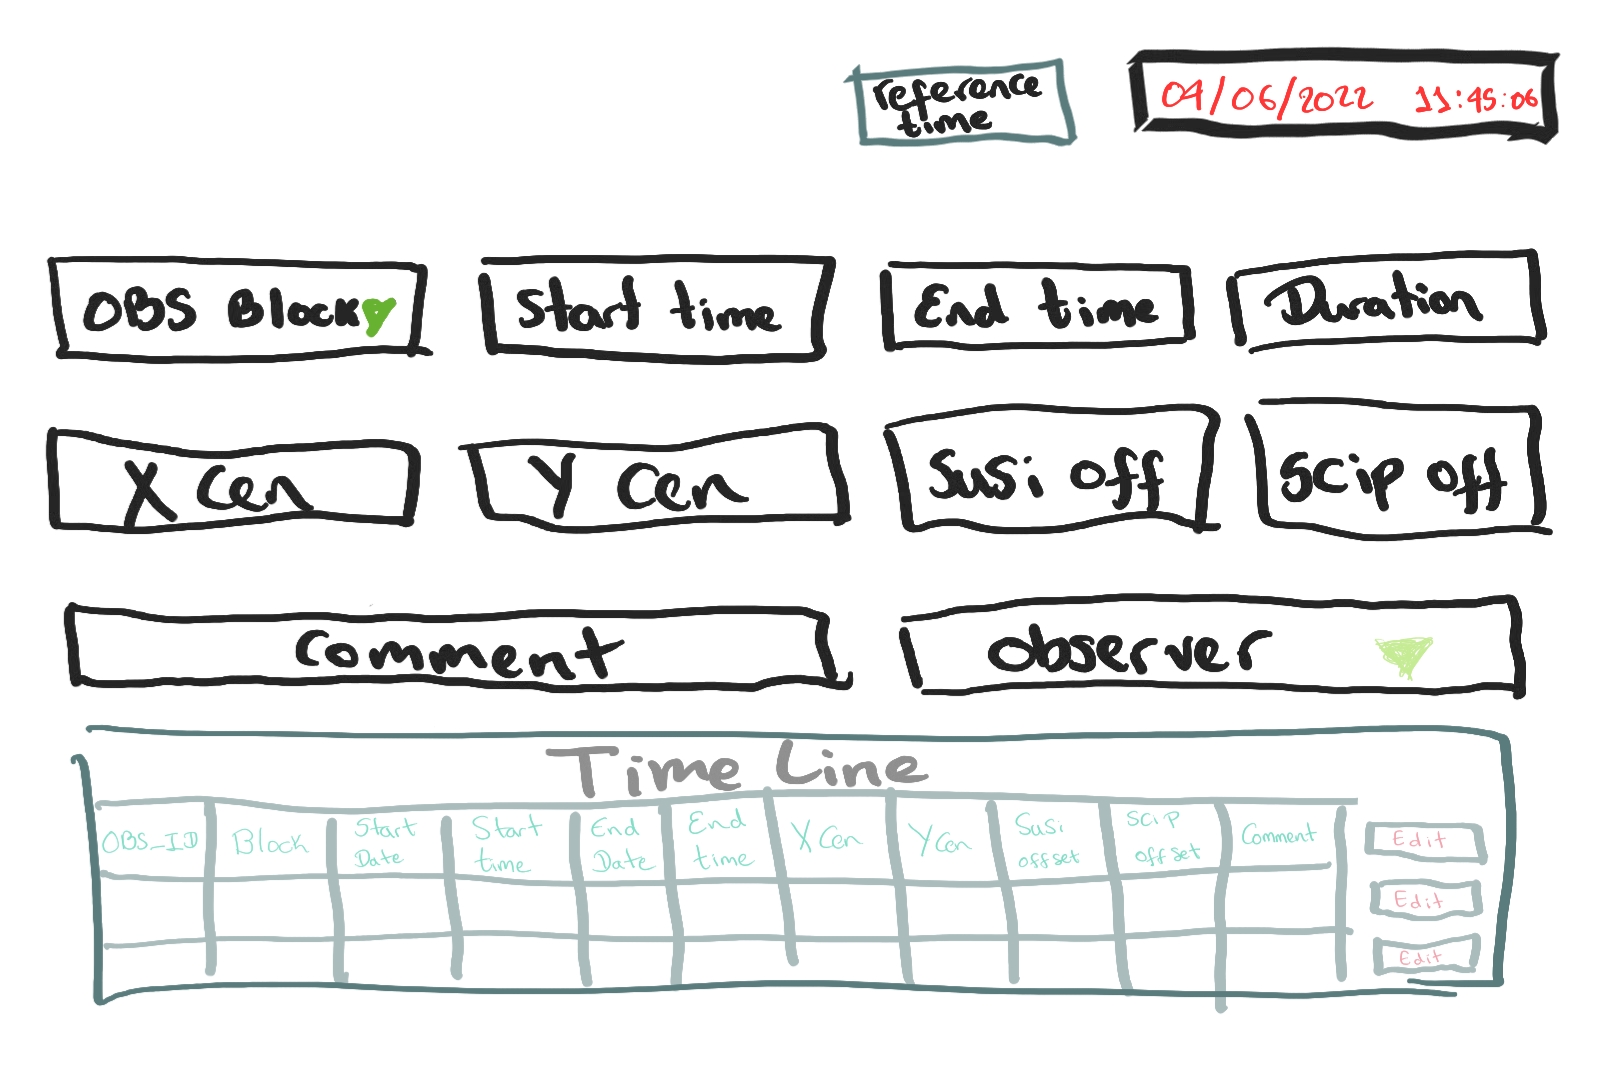 reference
time
04/06/2022 11:45:06
OBS Block
Start time
End time
Duration
X Cen
Y Cen
Susi off
SCip off
Comment
observer
Time Line
OBS_ID
Block
Start
Date
Start
time
End
Date
End
time
X Cen
Y Cen
Susi
offset
SCIP
offset
Comment
Edit
Edit
Edit